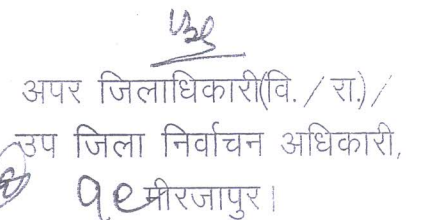 अपर जिलाधिकारी(वि. / रा.) /
उप जिला निर्वाचन अधिकारी,
मीरजापुर।